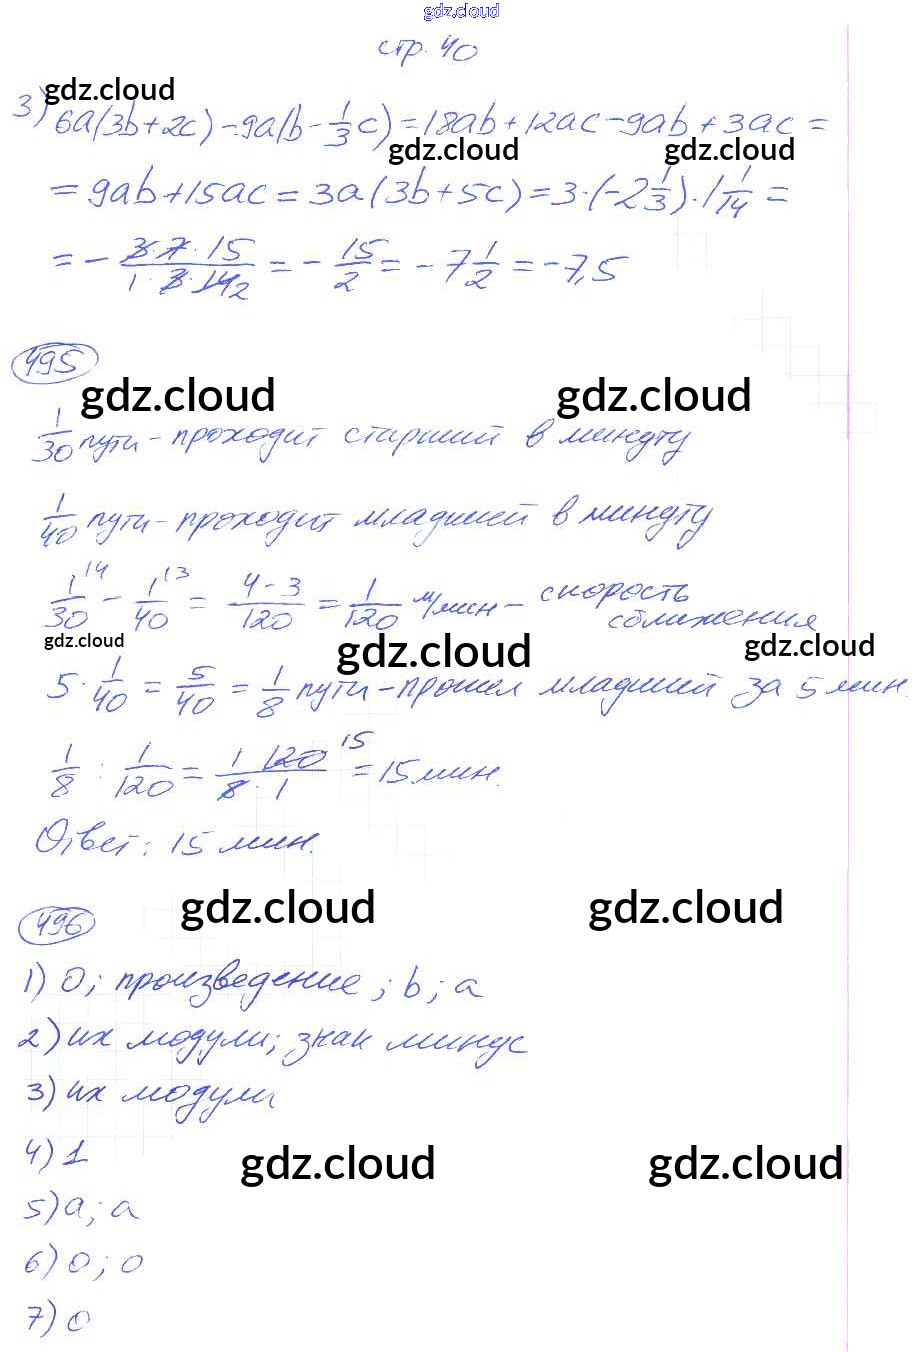 gdz.cloud
стр. 40
gdz.cloud
3) 6a(3b+2c)-9a(b-1/3c)=18ab+12ac-9ab+3ac=
gdz.cloud gdz.cloud
=9ab+15ac=3a(3b+5c)=3·(-2 1/3)·1 1/14=
=-(3·7·15)/(1·3·14 2)=-15/2=-7 1/2=-7,5
495
gdz.cloud gdz.cloud
1/30 пути-проходит старший в минуту
1/40 пути-проходит младший в минуту
1/30 \4 - 1/40 \3 = (4-3)/120 = 1/120 м/мин - скорость
сближения
gdz.cloud gdz.cloud gdz.cloud
5·1/40=5/40=1/8 пути-прошел младший за 5 мин.
1/8 : 1/120 = (1 120 15)/(8·1) = 15 мин.
Ответ: 15 мин.
gdz.cloud gdz.cloud
496
1) 0; произведение; b; a
2) их модули; знак минус
3) их модули
4) 1
gdz.cloud gdz.cloud
5) a; a
6) 0; 0
7) 0